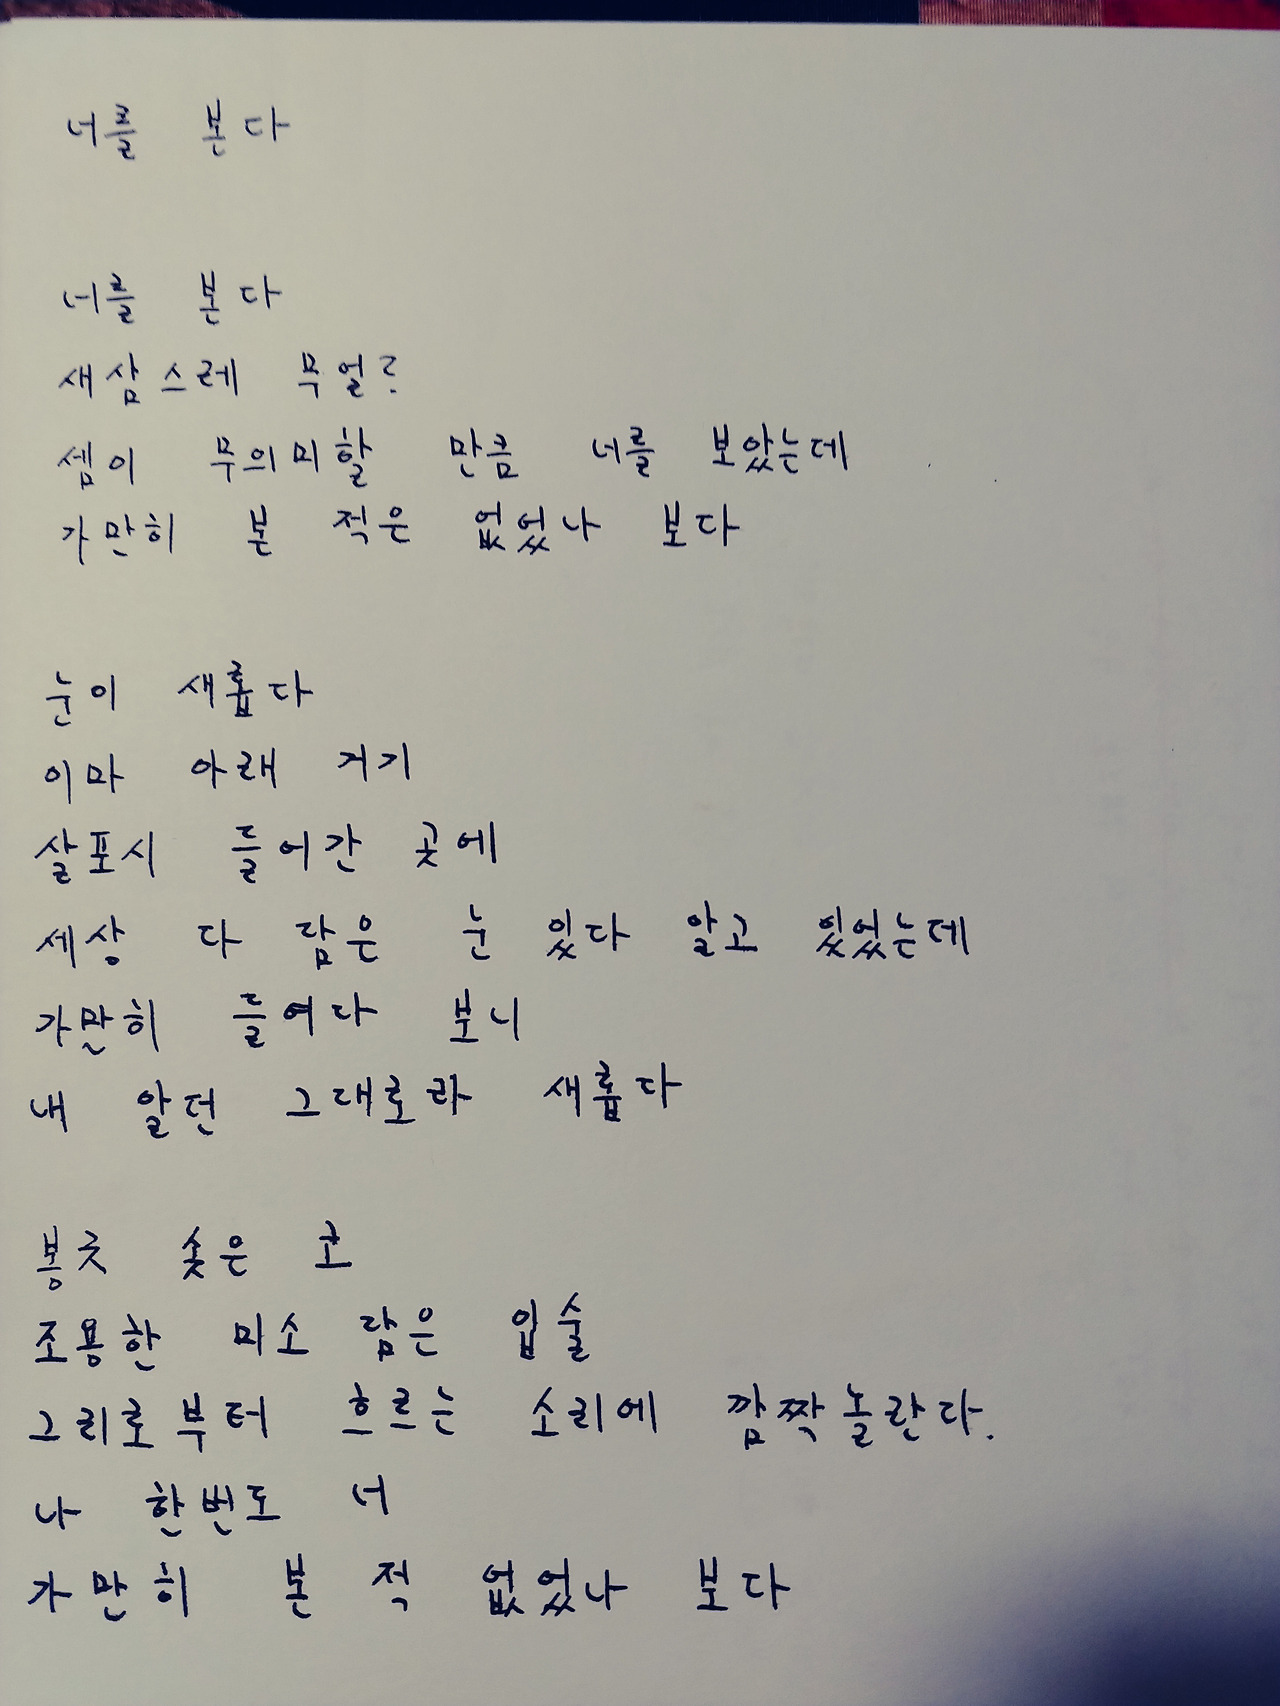 너를 본다
너를 본다
새삼스레 무얼?
셈이 무의미할 만큼 너를 보았는데
가만히 본 적은 없었나 보다
눈이 새롭다
이마 아래 거기
살포시 들어간 곳에
세상 다 담은 눈 있다 알고 있었는데
가만히 들여다 보니
내 알던 그대로라 새롭다
봉긋 솟은 코
조용한 미소 담은 입술
그리로부터 흐르는 소리에 깜짝 놀란다.
나 한번도 너
가만히 본 적 없었나 보다